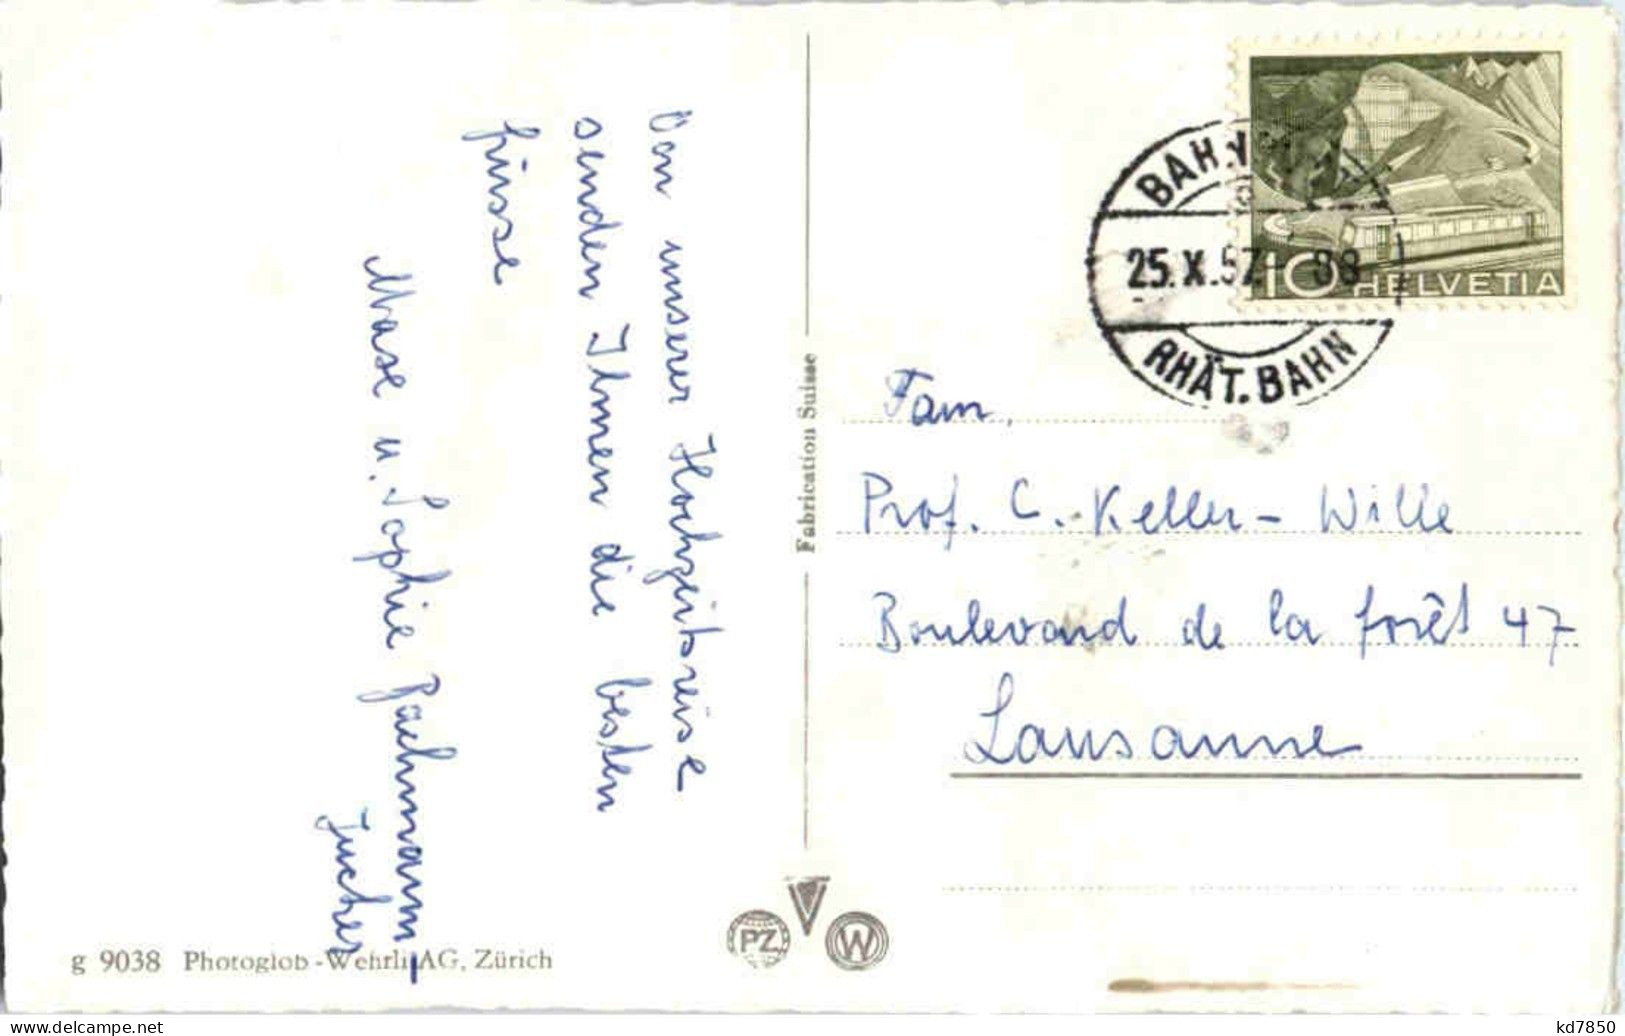 Von unserer Hochzeitsreise
senden Ihnen die besten
Grüsse
u. Sophie Bachmann-
Jucker
g 9038 Photoglob-Wehrli AG, Zürich
Fabrication Suisse
PZ
W
25.X.57.
RHÄT. BAHN
10 HELVETIA
Fam.
Prof. C. Keller-Wille
Boulevard de la forêt 47
Lausanne
kd7850